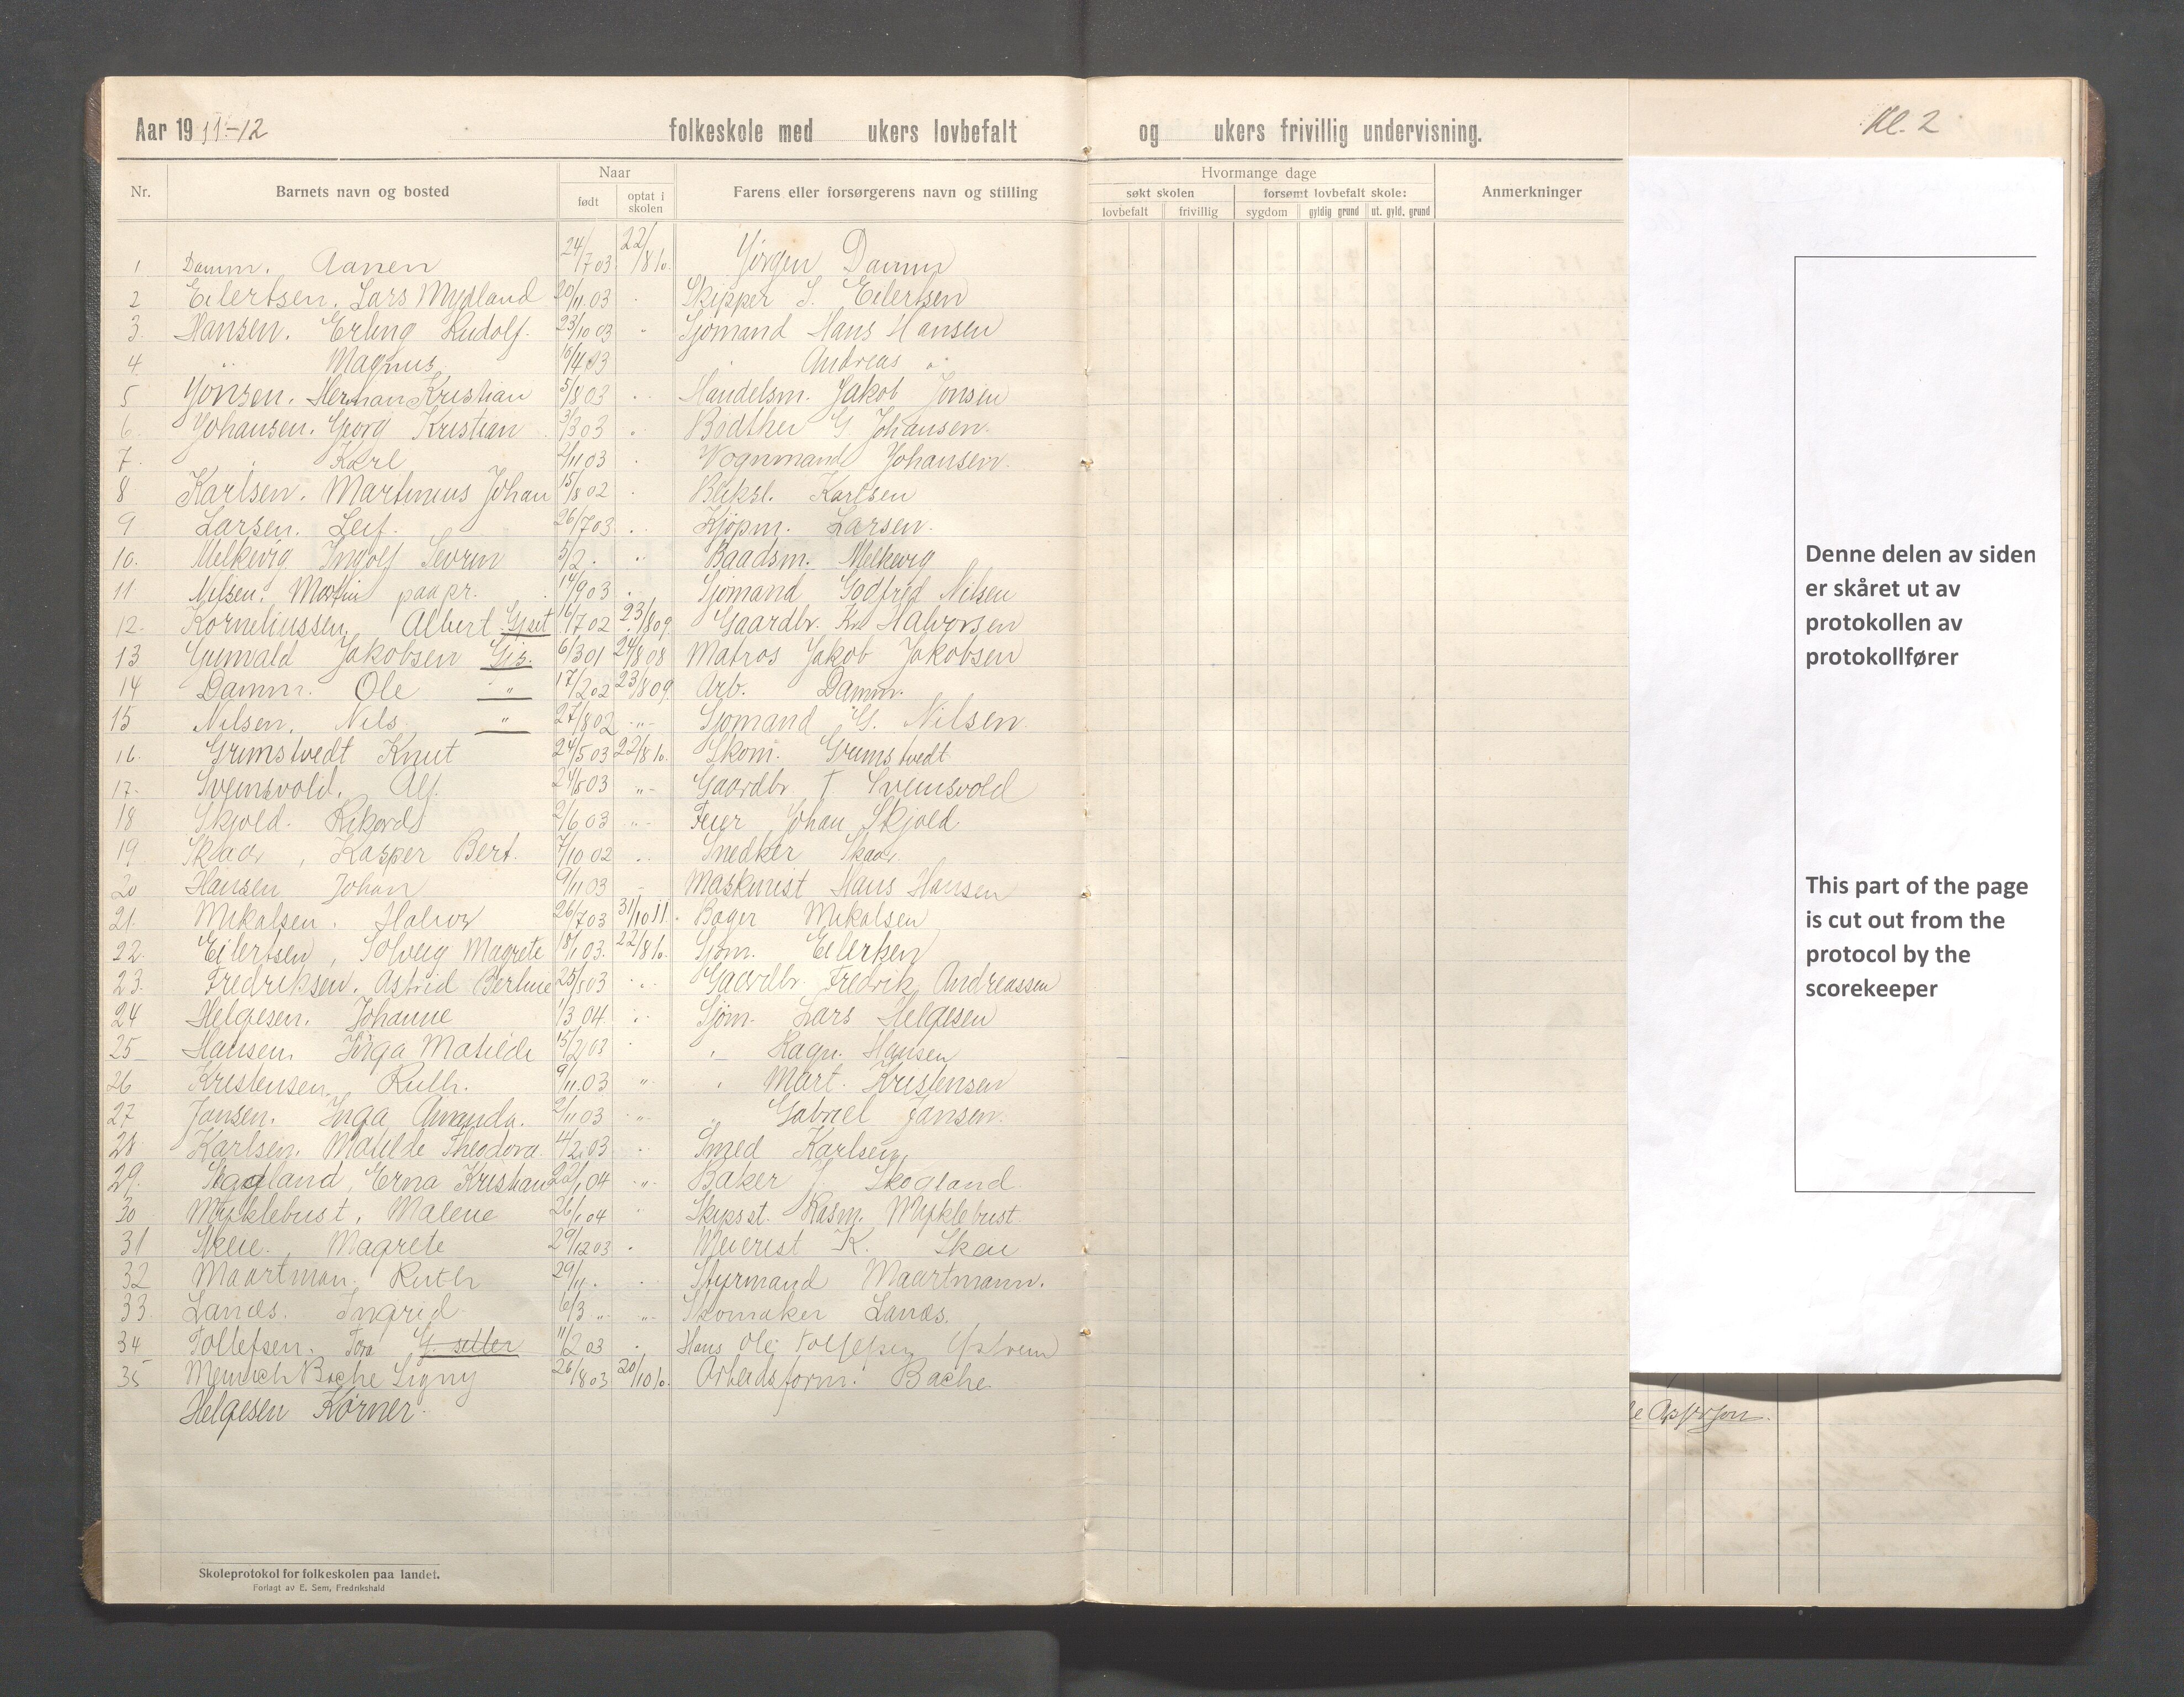 Aar 1911-12 folkeskole med ukers lovbefalt og ukers frivillig undervisning. Kl. 2
Nr. Barnets navn og bosted Naar Farens eller forsørgerens navn og stilling Hvormange dage Anmerkninger
født optat i skolen søkt skolen forsømt lovbefalt skole:
lovbefalt frivillig sygdom gyldig grund ut. gyld. grund
1 Damm. Aanen 24/7 03 22/8 10. Jørgen Damm
2 Eilertsen. Lars Mydland 20/11 03 " Skipper S. Eilertsen
3. Hansen. Erling Rudolf. 23/10 03 " Sjømand Hans Hansen
4. " Magnus 16/4 03 " Andreas "
5 Jonsen. Herman Kristian 5/8 03 " Handelsm. Jakob Jonsen
6. Johansen. Georg Kristian 3/3 03 " G Johansen.
7. " Karl 2/11 03 " Vognmand Johansen.
8 Karlsen. Martinius Johan 15/8 02 " Bliksl. Karlsen
9 Larsen. Leif. 26/7 03 " Kjøpm. Larsen.
10. Melkevig Ingolf Sevrin 5/2 " " Baadsm. Melkevig
11 Nilsen. Martin paa pr. 14/9 03 " Sjømand Godfred Nilsen
12. Korneliussen, Albert Gjsit 16/7 02 23/8 09. Gaardbr. Kr. Halvorsen
13 Gunvald Jakobsen Gjs. 6/3 01 24/8 08 Matros Jakob Jakobsen
14 Damm. Ole " 17/2 02 23/8 09. Arb. Damm.
15 Nilsen. Nils. " 27/8 02 -"- Sjømand G. Nilsen
16. Grimstvedt Knut 24/5 03 22/8 10. Skom. Grimstvedt
17. Svensvold. Alf. 24/5 03 "- Gaardbr T Svensvold
18 Skjold. Rikard 2/6 03 "- Feier Johan Skjold.
19 Skaar, Kasper Bert. 7/10 02 " Snedker Skaar.
20 Hansen Johan 9/11 03 - Maskinist Hans Hansen
21. Mikalsen. Halvor 26/7 03 31/10 11. Bager Mikalsen
22. Eilertsen, Solveig Magrete 18/1 03. 22/8 10. Sjøm. Eilertsen
23. Fredriksen. Astrid Bertine 25/1 03 " Gaardbr. Fredrik Andreassen
24 Helgesen. Johanne 1/3 04. " Sjøm. Lars Helgesen
25 Hansen. Inga Matilde 15/2 03 " " Ragn. Hansen
26 Kristensen, Ruth. 9/11 03 " " Mart. Kristensen
27 Jansen. Inga Amanda. 2/11 03 " " Gabriel Jansen.
28 Karlsen. Matilde Theodora 4/2 03 " Smed Karlsen
29. Skogland, Erna Kristiane 22/1 04 -"- Baker J. Skogland
30 Myklebust, Malene 26/1 04 " Skipsst. Rasm. Myklebust
31 Skeie. Magrete 29/12 03 " Meierist K. Skeie
32 Maartman. Ruth 29/11. " Styrmand Maartmann.
33. Lanes. Ingrid 6/3 " " Skomaker Lanes.
34 Tollefsen. Tora G. sitter 11/2 03 " Hans Ole Tollefsen
35 Meinich Bache Signy 26/8 03 20/10 10. Arbeidsform. Bache
Helgesen Kørner
Skoleprotokol for folkeskolen paa landet.
Forlagt av E. Sem, Fredrikshald
Denne delen av siden
er skåret ut av
protokollen av
protokollfører
This part of the page
is cut out from the
protocol by the
scorekeeper